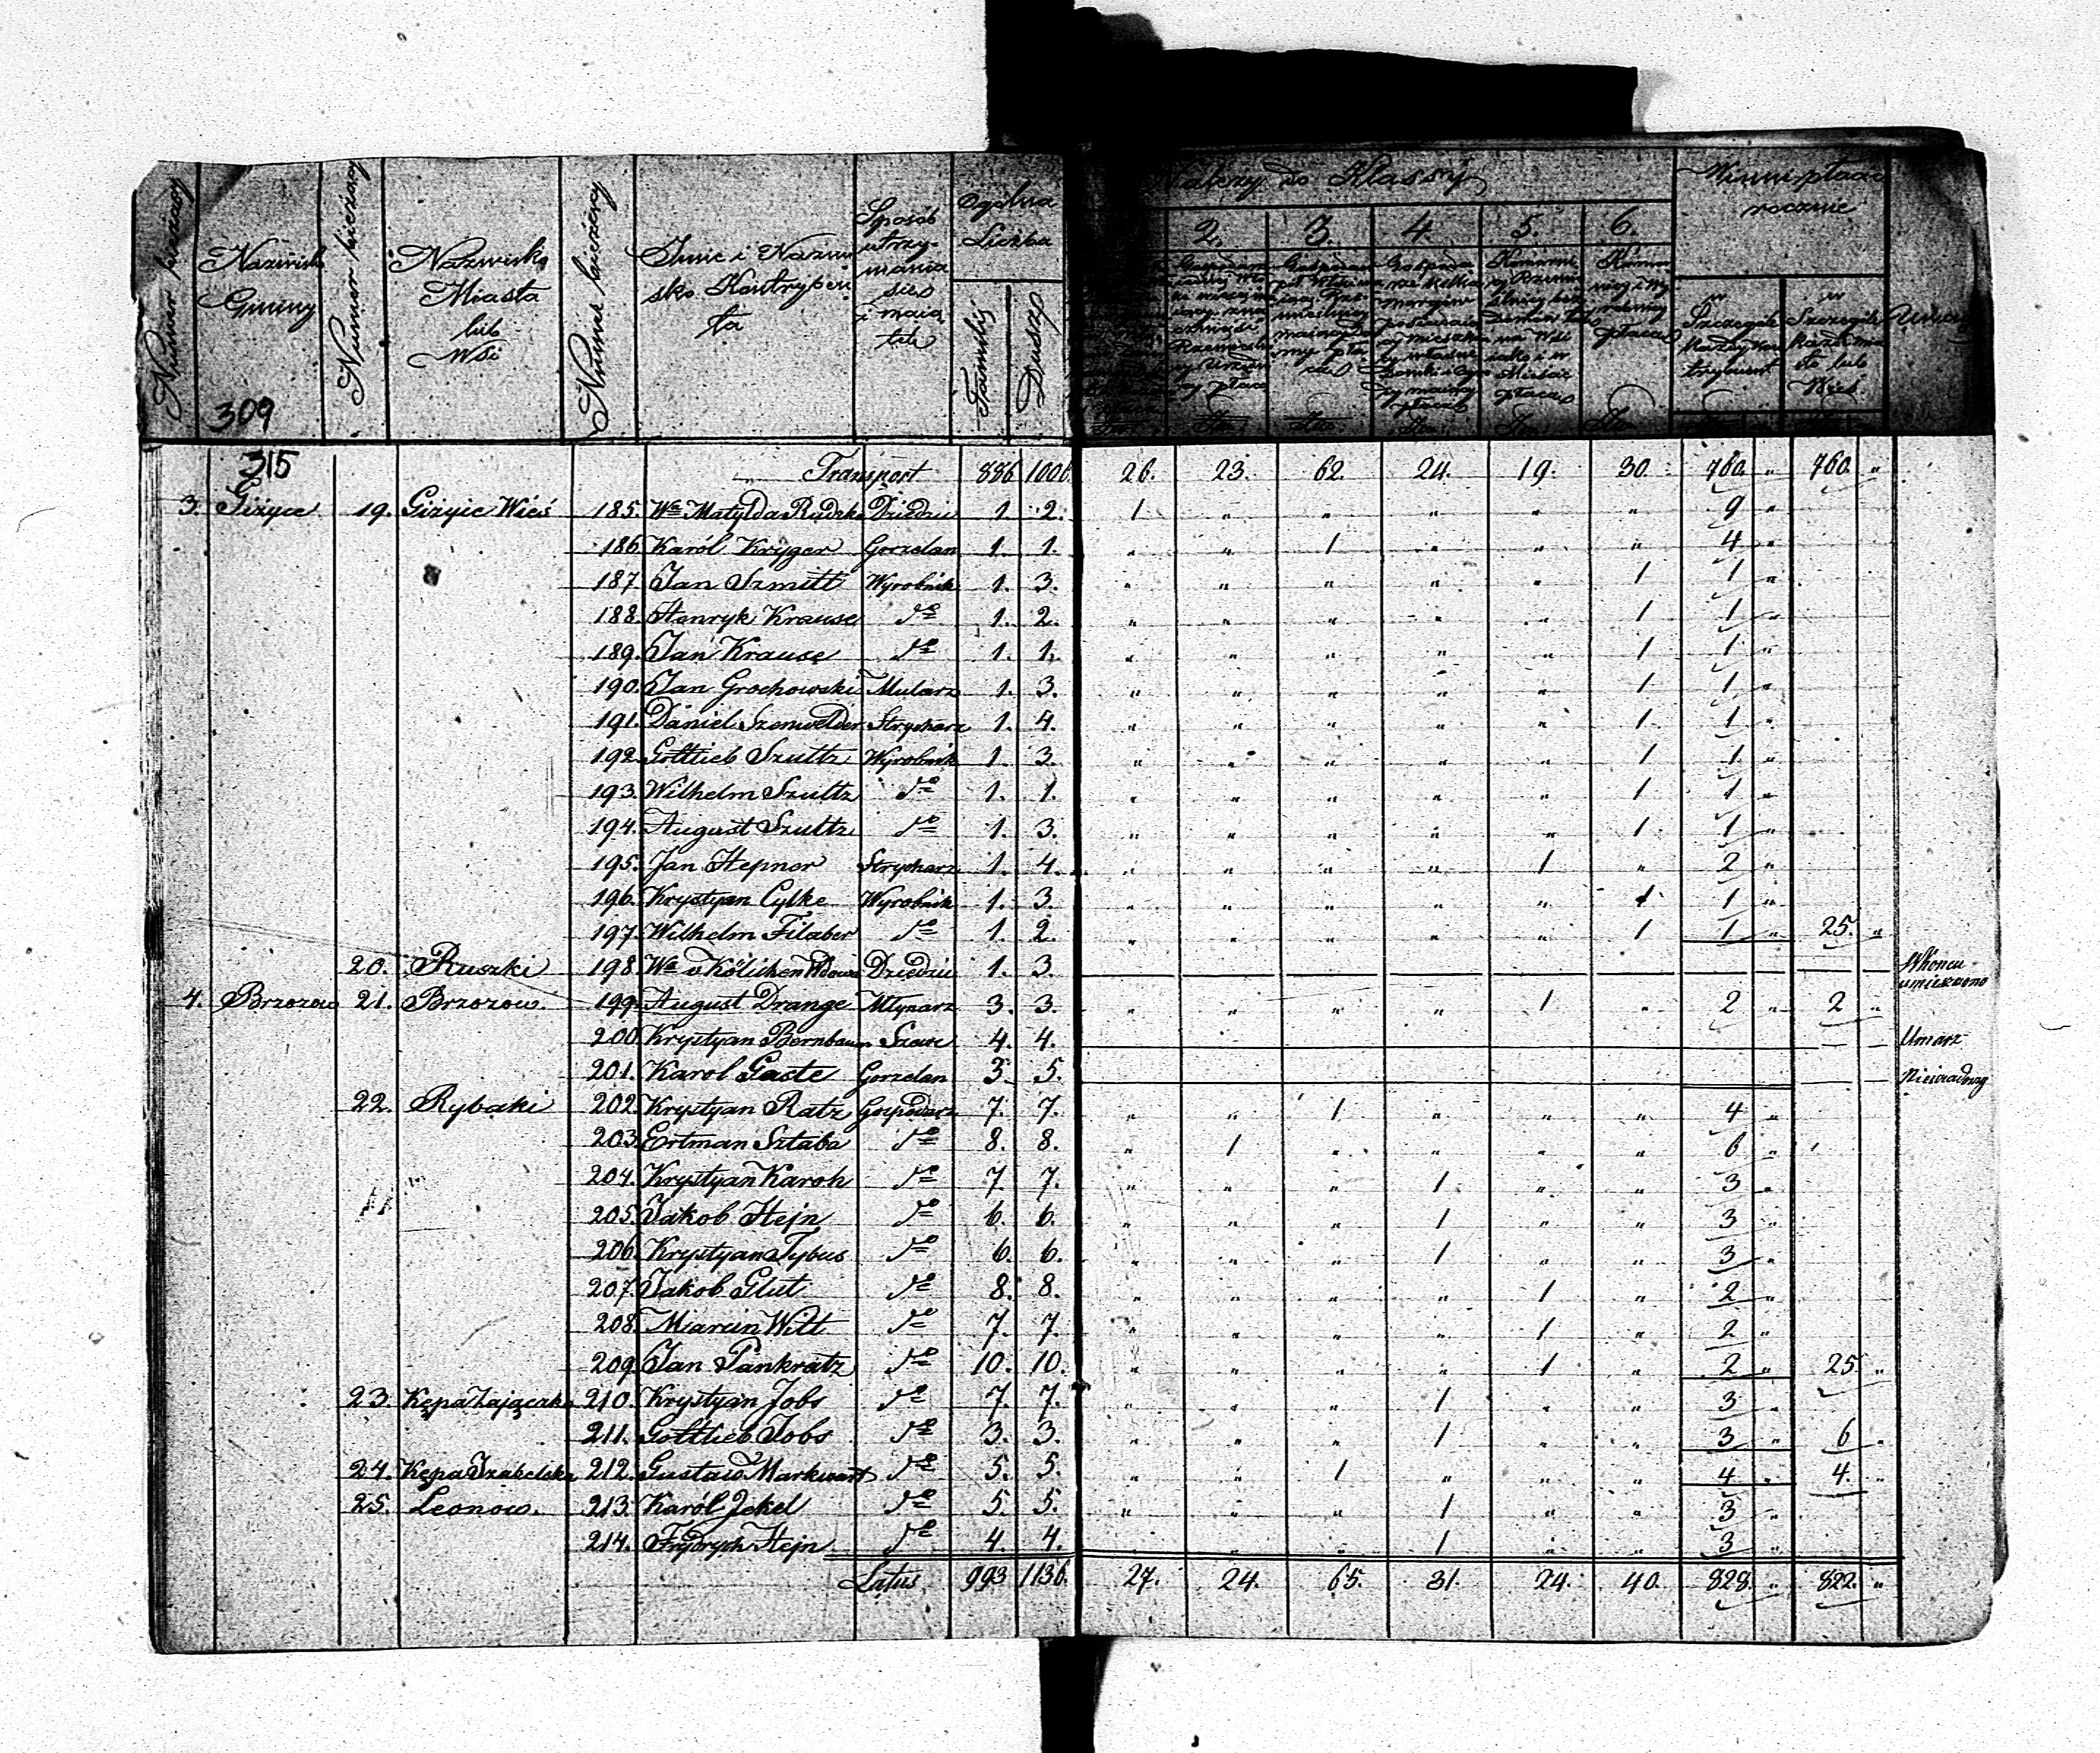 Numer bieżący Nazwisko Gminy Numer bieżący Nazwisko Miasta lub Wsi Numer bieżący Imie i Nazwisko Kontrybenta Sposób utrzymania się i maiątek Ogólna Liczba Familij Dusz
Należy do Klassy
2. 3. 4. 5. 6.
Winni płacić rocznie
309
315
Transport 886 1006. 26. 23. 62. 24. 19. 30. 760. „ 760. „
3. Giżyce 19. Giżyie Wieś 185. Wa Matylda Rudzka Dziedzic 1. 2. 1 „ „ „ „ „ 9 „
186. Karól Kryger Gorzelan 1. 1. „ „ 1 „ „ „ 4 „
187. Jan Szmitt Wyrobnik 1. 3. „ „ „ „ „ 1 1 „
188. Henryk Krause do 1. 2. „ „ „ „ „ 1 1 „
189. Jan Krause do 1. 1. „ „ „ „ „ 1 1 „
190. Jan Grochowski Mularz 1. 3. „ „ „ „ „ 1 1 „
191. Daniel Szenwelder Strycharz 1. 4. „ „ „ „ „ 1 1 „
192. Gottlieb Szultz Wyrobnik 1. 3. „ „ „ „ „ 1 1 „
193. Wilhelm Szultz do 1. 1. „ „ „ „ „ 1 1 „
194. August Szultz do 1. 3. „ „ „ „ „ 1 1 „
195. Jan Hepner Strycharz 1. 4. „ „ „ „ 1 „ 2 „
196. Krystyan Cylke Wyrobnik 1. 3. „ „ „ „ „ 1 1 „
197. Wilhelm Filaber do 1. 2. „ „ „ „ „ 1 1 „ 25. „
20. Ruszki 198. Wa v Kölichen Wdowa Dziedzic 1. 3.
4. Brzozow 21. Brzozow. 199. August Drange Młynarz 3. 3. „ „ „ „ 1 „ 2 „ 2 „
200. Krystyan Bernbaum Szewc 4. 4. Umarz
201. Karol Gaste Gorzelan 3. 5.
22. Rybaki 202. Krystyan Ratz Gospodarz 7. 7. „ „ 1 „ „ „ 4 „
203. Ertman Sztaba do 8. 8. „ 1 „ „ „ „ 6 „
204. Krystyan Karoh do 7. 7. „ „ „ 1 „ „ 3 „
205. Jakob Hejn do 6. 6. „ „ „ 1 „ „ 3 „
206. Krystyan Tybus do 6. 6. „ „ „ 1 „ „ 3 „
207. Jakob Glut do 8. 8. „ „ „ „ 1 „ 2 „
208. Marcin Witt do 7. 7. „ „ „ „ 1 „ 2 „
209. Jan Pankratz do 10. 10. „ „ „ „ 1 „ 2 „ 25 „
23. Kępa Zającaka 210. Krystyan Jobs do 7. 7. „ „ „ 1 „ „ 3 „
211. Gottlieb Jobs do 3. 3. „ „ „ 1 „ „ 3 „ 6 „
24. Kępa Izabelska 212. Gustaw Markwart do 5. 5. „ „ 1 „ „ „ 4 „ 4. „
25. Leonow. 213. Karól Jekel do 5. 5. „ „ „ 1 „ „ 3 „
214. Frydrych Hejn do 4. 4. „ „ „ 1 „ „ 3 „
Latus 993 1136. 27. 24. 65. 31. 24. 40. 828. „ 822. „